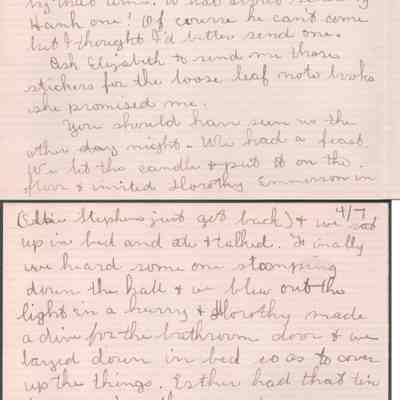 by that time. What about
Hank one! Of course he can't come
but I thought I'd better send one.
Ask Elizabeth to send me those
stickers for the loose leaf note books
she promised me.
You should have seen us the
other day night. We had a feast.
We lit the candle & put it on the
floor & invited Dorothy Emmerson in
4/7
(Ottie Stephens just got back) & we sat
up in bed and ate & talked. Finally
we heard some one stomping
down the hall & we blew out the
light in a hurry & Dorothy made
a dive for the bathroom door & we
layed down in bed so as to cover
up the things. Esther had that tin